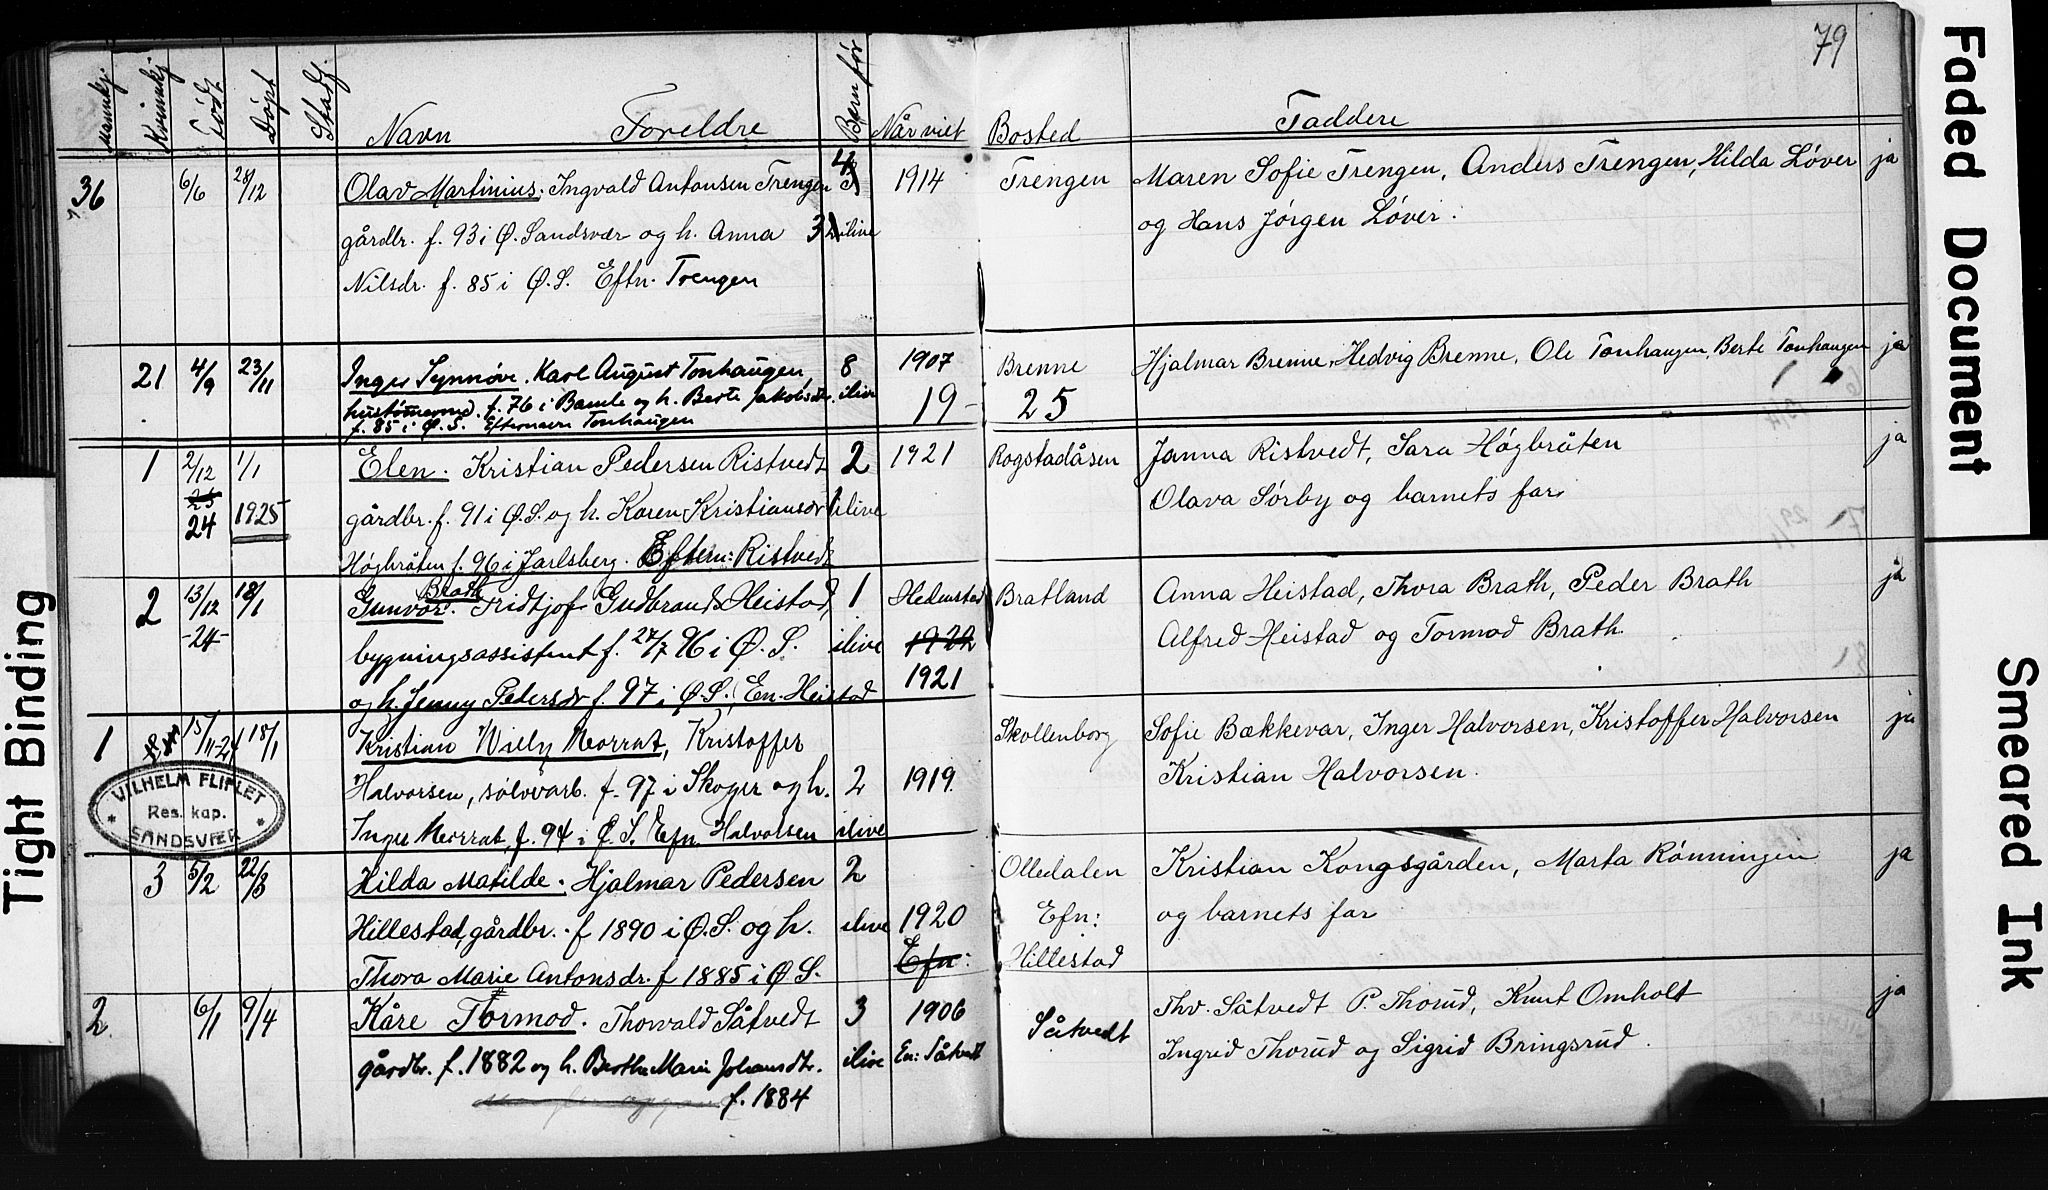 79
Mannkj. Kvinnkj. Födt Döpt Stadf. Navn Foreldre Barn för Når viet Bosted Faddere
36 6/6 28/12 Olav Martinius. Ingvald Antonsen Trengen 4 1914 Trengen Maren Sofie Trengen, Anders Trengen, Hilda Löver ja
gårdbr. f. 93 i Ø. Sandsvær og h. Anna 3 ilive og Hans Jörgen Löver.
Nilsdr. f. 85 i Ø. S. Eftn. Trengen
21 4/9 23/11 Inger Synnöve. Karl August Tonhaugen 8 1907 Brenne Hjalmar Brenne, Hedvig Brenne, Ole Tonhaugen, Berte Tonhaugen ja
f. 76 i Bamle og h. Berte Jakobsdtr. ilive 19- 25
f. 85 i Ø. S. Efternavn Tonhaugen
1 2/12 1/1 Elen. Kristian Pedersen Ristvedt 2 1921 Rogstadåsen Janna Ristvedt, Sara Högbråten ja
24 1925 gårdbr. f. 91 i Ø. S. og h. Karen Kristiansdr ilive Olava Sörby og barnets far
Högbråten f. 96 i Jarlsberg. Eftern: Ristvedt
Brath
2 13/12 18/1 Gunvor. Fridtjof Gudbrands Heistad, 1 Hedenstad Bratland Anna Heistad, Thora Brath, Peder Brath ja
-24- bygningsassistent f. 27/7 96 i Ø. S. ilive 1922 Alfred Heistad og Tormod Brath
og h. Jenny Pedersdr f. 97 i Ø. S. En. Heistad 1921
1 15/11-24 18/1 Kristian Willy Morrat, Kristoffer Skollenborg Sofie Bækkevar, Inger Halvorsen, Kristoffer Halvorsen ja
Halvorsen, sölvarb. f. 97 i Skoger og h. 2 1919 Kristian Halvorsen.
Inger Morrat, f. 94 i Ø. S. Efn. Halvorsen ilive
VILHELM FLIFLET
Res. kap.
SANDSVÆR
3 5/2 22/3 Hilda Matilde. Hjalmar Pedersen 2 Olledalen Kristian Kongsgården, Marta Rönningen ja
Hillestad, gårdbr. f 1890 i Ø. S. og h. ilive 1920 Efn: og barnets far
Thora Marie Antonsdr. f 1885 i Ø S. Efn: Hillestad
2. 6/1 9/4 Kåre Tormod. Thorvald Såtvedt 3 1906 Såtvedt Thv. Såtvedt P. Thorud, Knut Omholt ja
gårdbr. f. 1882 og h. Berthe Marie Johansdtr. ilive En: Såtvedt Ingrid Thorud og Sigrid Bringsrud.
f. 1884
Tight Binding
Faded Document
Smeared Ink